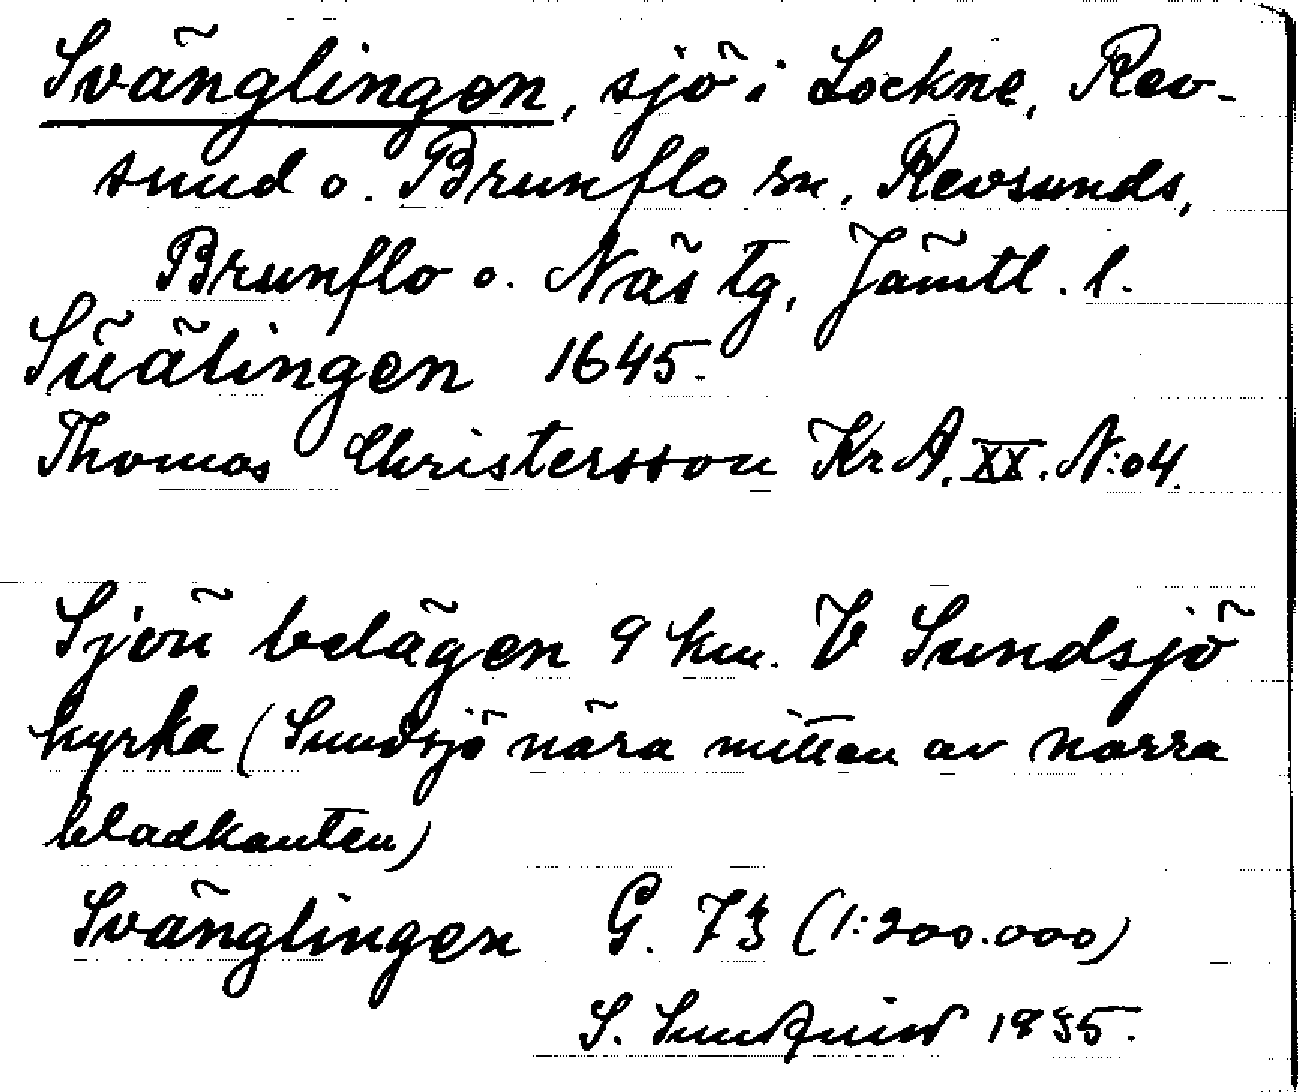 Svänglingen, sjö i Lockne, Rev-
sund o. Brunflo sn. Revsunds,
Brunflo o. Näs tg, Jämtl. l.
Süälingen 1645.
Thomas Christersson Kr A. XX. N:o 4.
Sjön belägen 9 km. V Sundsjö
kyrka (Sundsjö nära mitten av norra
bladkanten)
Svänglingen G. 73 (1:200.000)
S. Sundquist 1935.